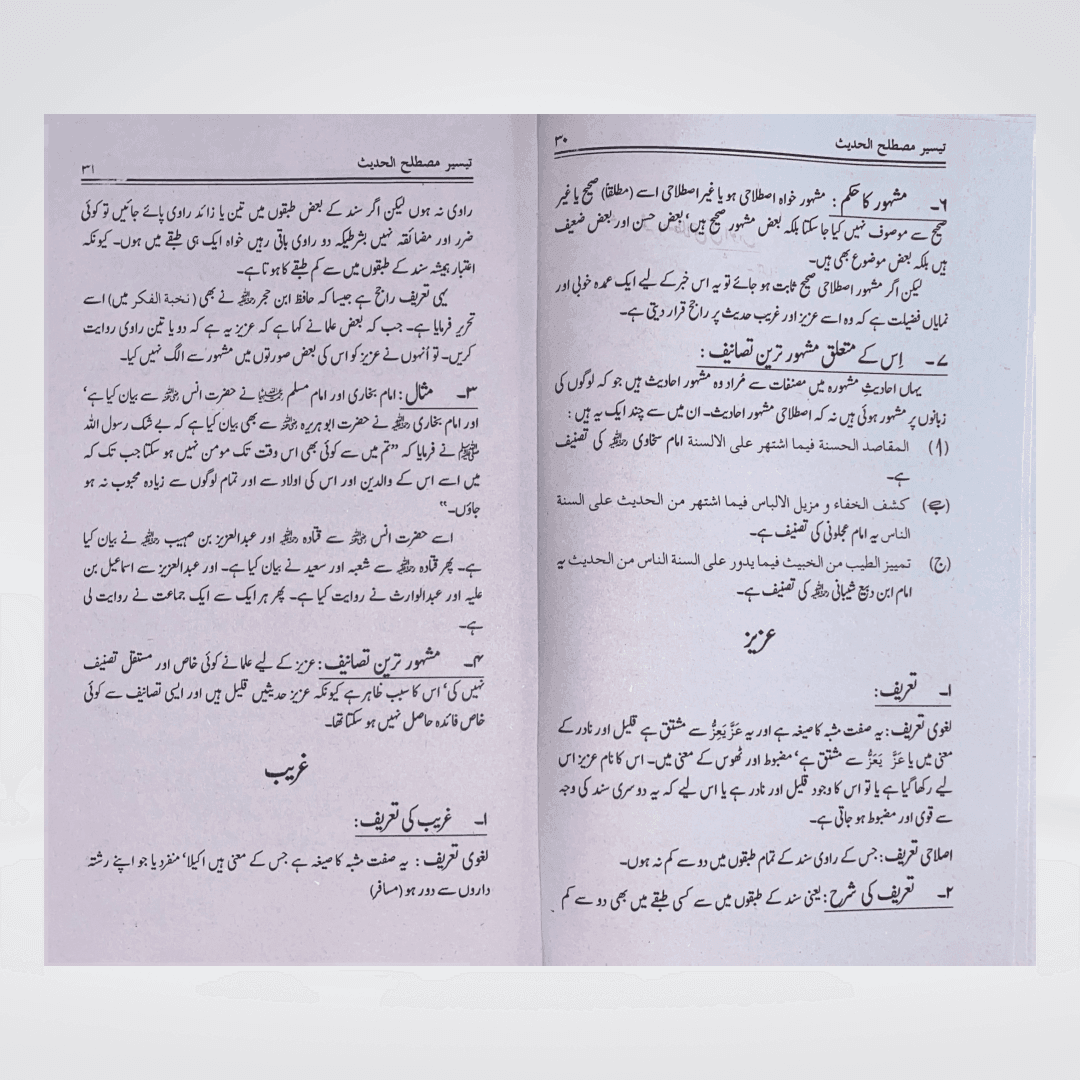 تیسیر مصطلح الحدیث ۳۰
۶۔ مشہور کا حکم : مشہور خواہ اصطلاحی ہو یا غیر اصطلاحی اسے (مطلقاً) صحیح یا غیر
صحیح سے موصوف نہیں کیا جا سکتا بلکہ بعض مشہور صحیح ہیں‘ بعض حسن اور بعض ضعیف
ہیں بلکہ بعض موضوع بھی ہیں۔
لیکن اگر مشہور اصطلاحی صحیح ثابت ہو جائے تو یہ اس خبر کے لیے ایک عمدہ خوبی اور
نمایاں فضیلت ہے کہ وہ اسے عزیز اور غریب حدیث پر راجح قرار دیتی ہے۔
۷۔ اِس کے متعلق مشہور ترین تصانیف :
یہاں احادیثِ مشہورہ میں مصنفات سے مُراد وہ مشہور احادیث ہیں جو کہ لوگوں کی
زبانوں پر مشہور ہوئی ہیں نہ کہ اصطلاحی مشہور احادیث۔ ان میں سے چند ایک یہ ہیں :
(ا) المقاصد الحسنة فیما اشتهر على الالسنة امام سخاوی رحمہ اللہ کی تصنیف
ہے۔
(ب) كشف الخفاء و مزيل الالباس فيما اشتهر من الحديث على السنة
الناس یہ امام عجلونی کی تصنیف ہے۔
(ج) تمييز الطيب من الخبيث فيما يدور على السنة الناس من الحديث یہ
امام ابن دبیع شیبانی رحمہ اللہ کی تصنیف ہے۔
عزیز
۱۔ تعریف:
لغوی تعریف : یہ صفت مشبہ کا صیغہ ہے اور یہ عَزَّ یَعِزُّ سے مشتق ہے قلیل اور نادر کے
معنی میں یا عَزَّ یَعَزُّ سے مشتق ہے‘ مضبوط اور ٹھوس کے معنی میں۔ اس کا نام عزیز اس
لیے رکھا گیا ہے یا تو اس کا وجود قلیل اور نادر ہے یا اس لیے کہ یہ دوسری سند کی وجہ
سے قوی اور مضبوط ہو جاتی ہے۔
اصلاحی تعریف : جس کے راوی سند کے تمام طبقوں میں دو سے کم نہ ہوں۔
۲۔ تعریف کی شرح : یعنی سند کے طبقوں میں سے کسی طبقے میں بھی دو سے کم
تیسیر مصطلح الحدیث ۳۱
راوی نہ ہوں لیکن اگر سند کے بعض طبقوں میں تین یا زائد راوی پائے جائیں تو کوئی
ضرر اور مضائقہ نہیں بشرطیکہ دو راوی باقی رہیں خواہ ایک ہی طبقے میں ہوں۔ کیونکہ
اعتبار ہمیشہ سند کے طبقوں میں سے کم طبقے کا ہوتا ہے۔
یہی تعریف راجح ہے جیسا کہ حافظ ابن حجر رحمہ اللہ نے بھی (نخبة الفكر میں) اسے
تحریر فرمایا ہے۔ جب کہ بعض علما نے کہا ہے کہ عزیز یہ ہے کہ دو یا تین راوی روایت
کریں۔ تو اُنہوں نے عزیز کو اس کی بعض صورتوں میں مشہور سے الگ نہیں کیا۔
۳۔ مثال : امام بخاری اور امام مسلم نے حضرت انس سے بیان کیا ہے‘
اور امام بخاری رحمہ اللہ نے حضرت ابو ہریرہ سے بھی بیان کیا ہے کہ بے شک رسول اللہ
ﷺ نے فرمایا کہ ”تم میں سے کوئی بھی اس وقت تک مومن نہیں ہو سکتا جب تک کہ
میں اسے اس کے والدین اور اس کی اولاد سے اور تمام لوگوں سے زیادہ محبوب نہ ہو
جاؤں۔“
اسے حضرت انس سے قتادہ رحمہ اللہ اور عبدالعزیز بن صہیب رحمہ اللہ نے بیان کیا
ہے۔ پھر قتادہ رحمہ اللہ سے شعبہ اور سعید نے بیان کیا ہے۔ اور عبدالعزیز سے اسماعیل بن
علیہ اور عبدالوارث نے روایت کیا ہے۔ پھر ہر ایک سے ایک جماعت نے روایت لی
ہے۔
۴۔ مشہور ترین تصانیف : عزیز کے لیے علما نے کوئی خاص اور مستقل تصنیف
نہیں کی‘ اس کا سبب ظاہر ہے کیونکہ عزیز حدیثیں قلیل ہیں اور ایسی تصانیف سے کوئی
خاص فائدہ حاصل نہیں ہو سکتا تھا۔
غریب
۱۔ غریب کی تعریف :
لغوی تعریف : یہ صفت مشبہ کا صیغہ ہے جس کے معنی ہیں اکیلا‘ منفرد یا جو اپنے رشتہ
داروں سے دور ہو (مسافر)